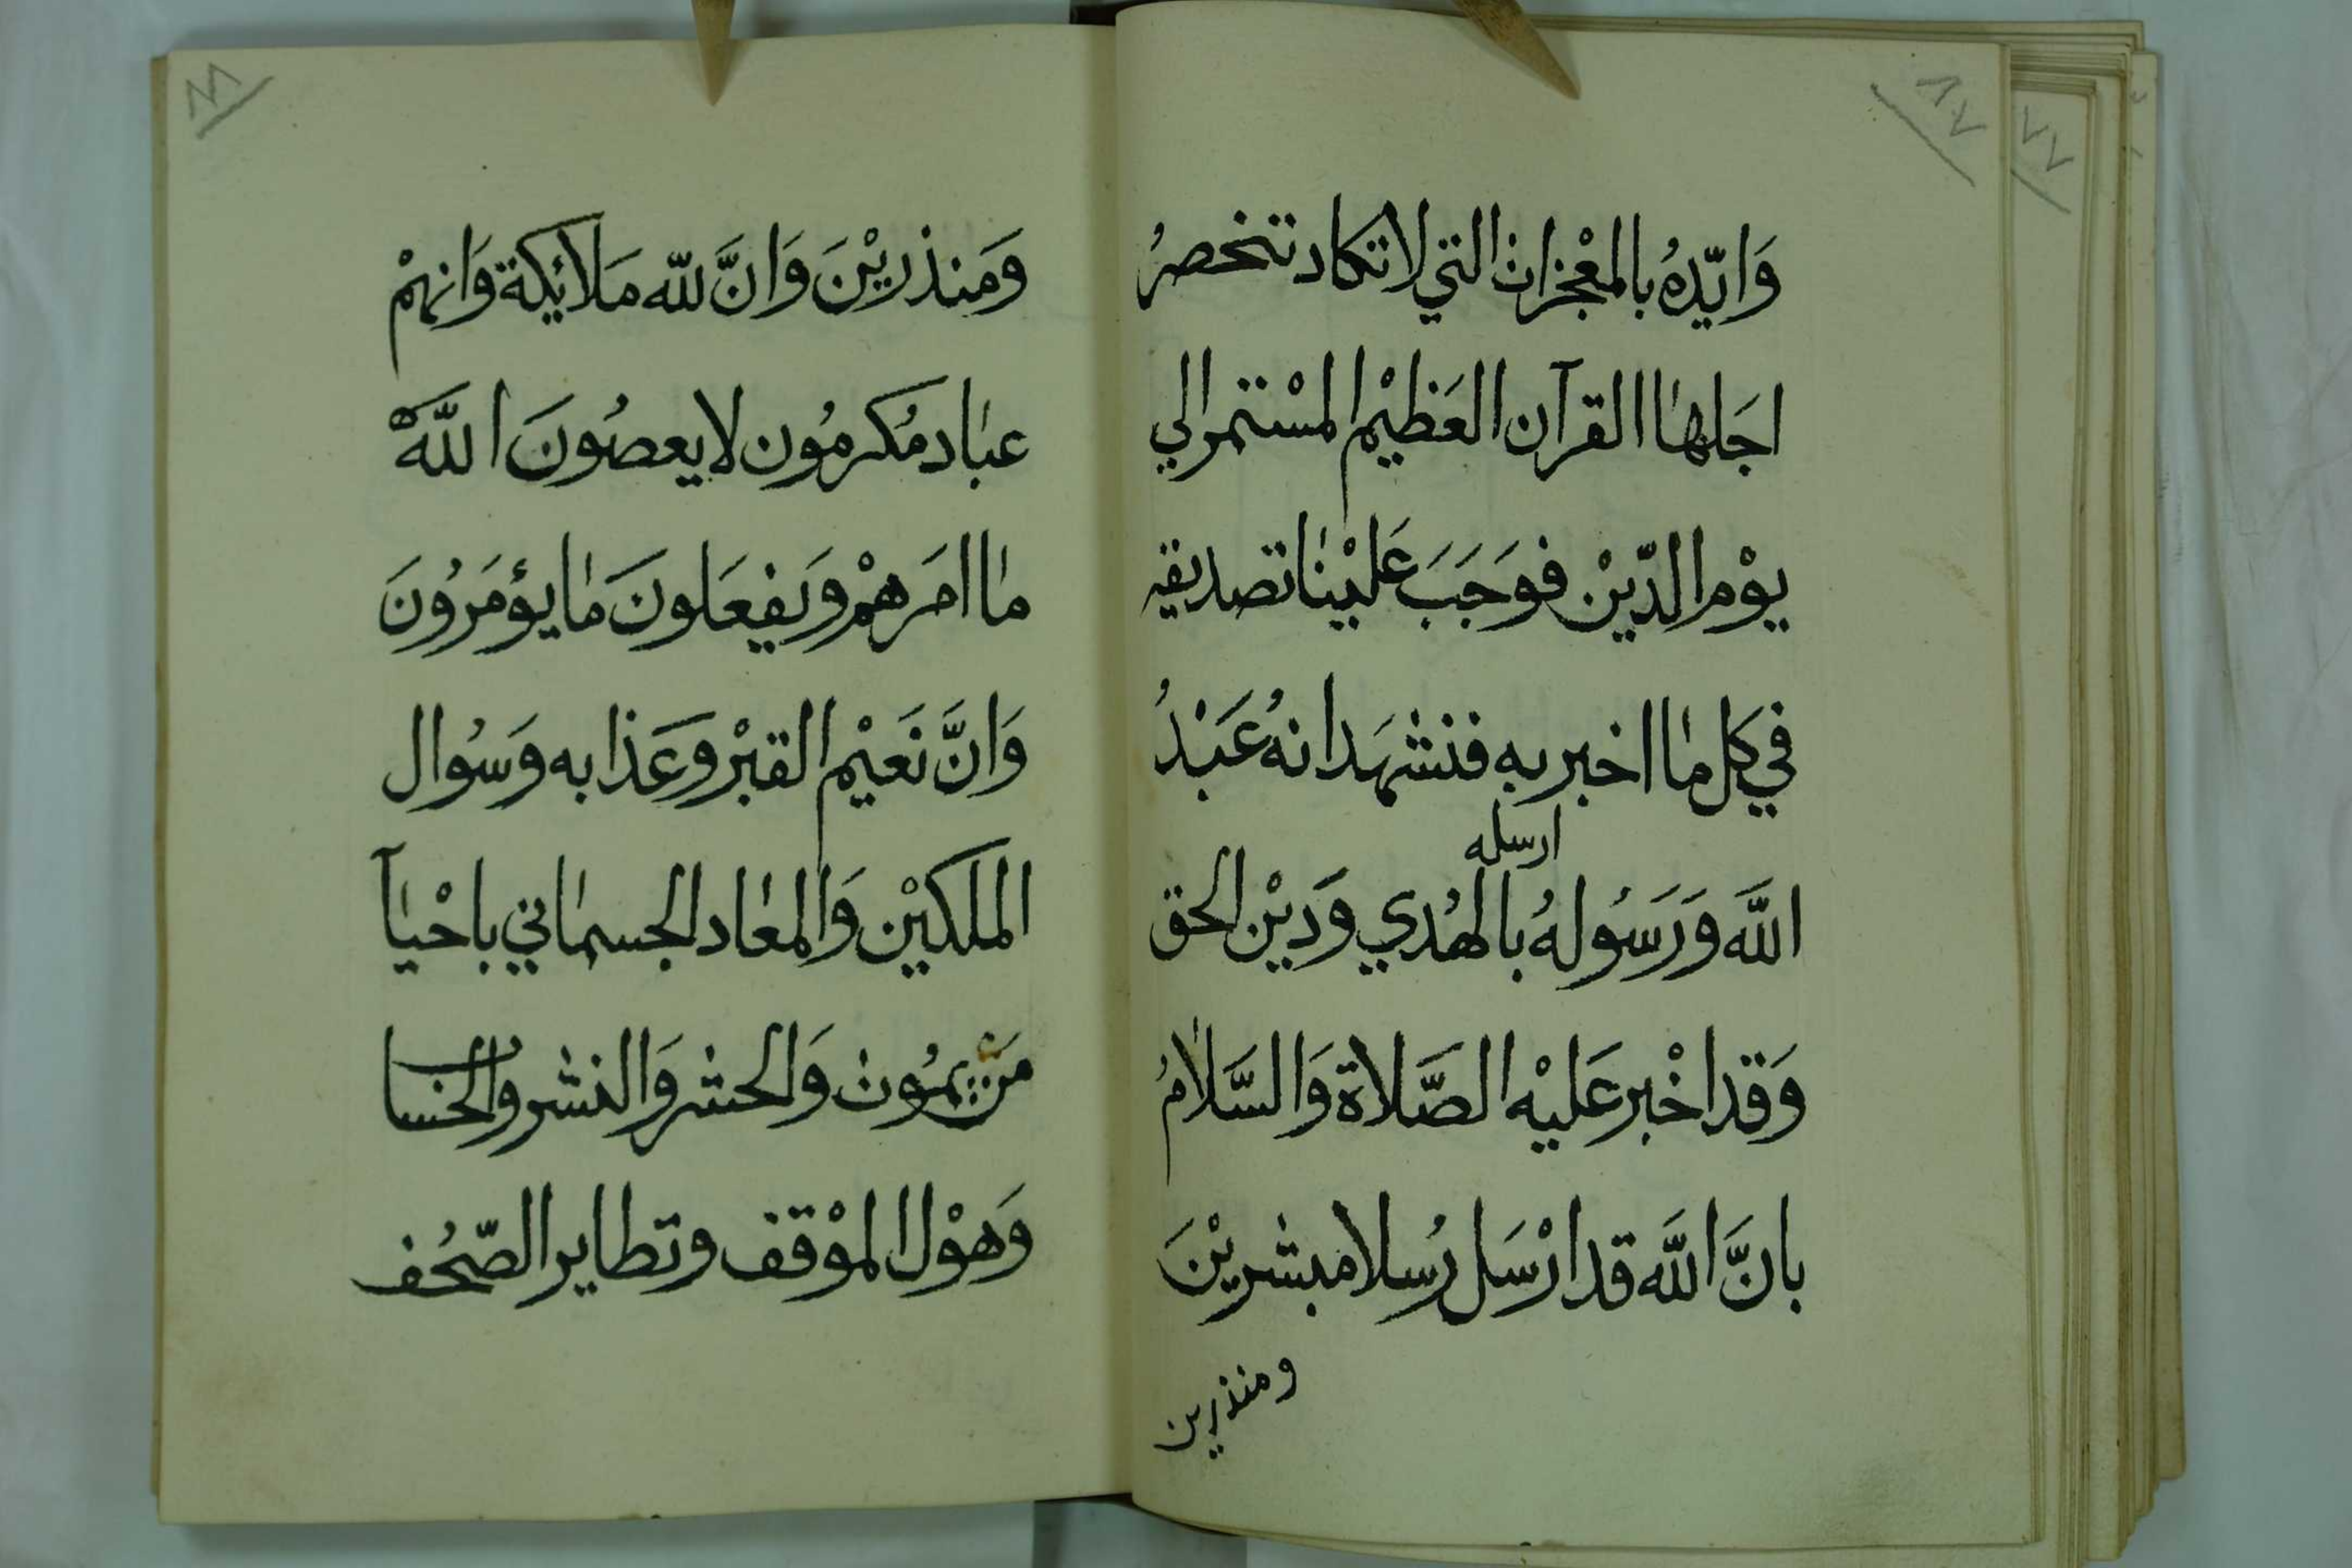 ٨٧
وَايّدهُ بالمعْجزات التي لاتكاد تنحصرُ
اجَلهاا القرآن العَظيْم المسْتمر الي
يوْم الدّيْن فوَجَبَ عَليْنا تصديقه
في كل ما اخبر به فنشهَد انهُ عَبْدُ
ارسله
اللَّه وَرَسُولهُ بالهُدي وَديْن الحق
وَقد اخْبر عَليْه الصَّلاة وَالسَّلامُ
بانَّ اللَّه قد ارْسَل رُسلا مبشريْنَ
ومنذرين
ومَنذريْنَ وَانَّ للّه مَلائِكة وَانهمْ
عباد مُكرمُون لا يعصُونَ اللَّهَ
ما امَرهمْ وَيفعَلونَ مَا يؤمَرُونَ
وَانَّ نَعيْم القبْر وَعَذابه وَسُوال
الملكيْن وَالمعَاد الجسماني باحْيآ
مَن يمُوت وَالحشر وَالنشر والحساب
وَهوْل الموْقف وتطاير الصّحُف
٧٧